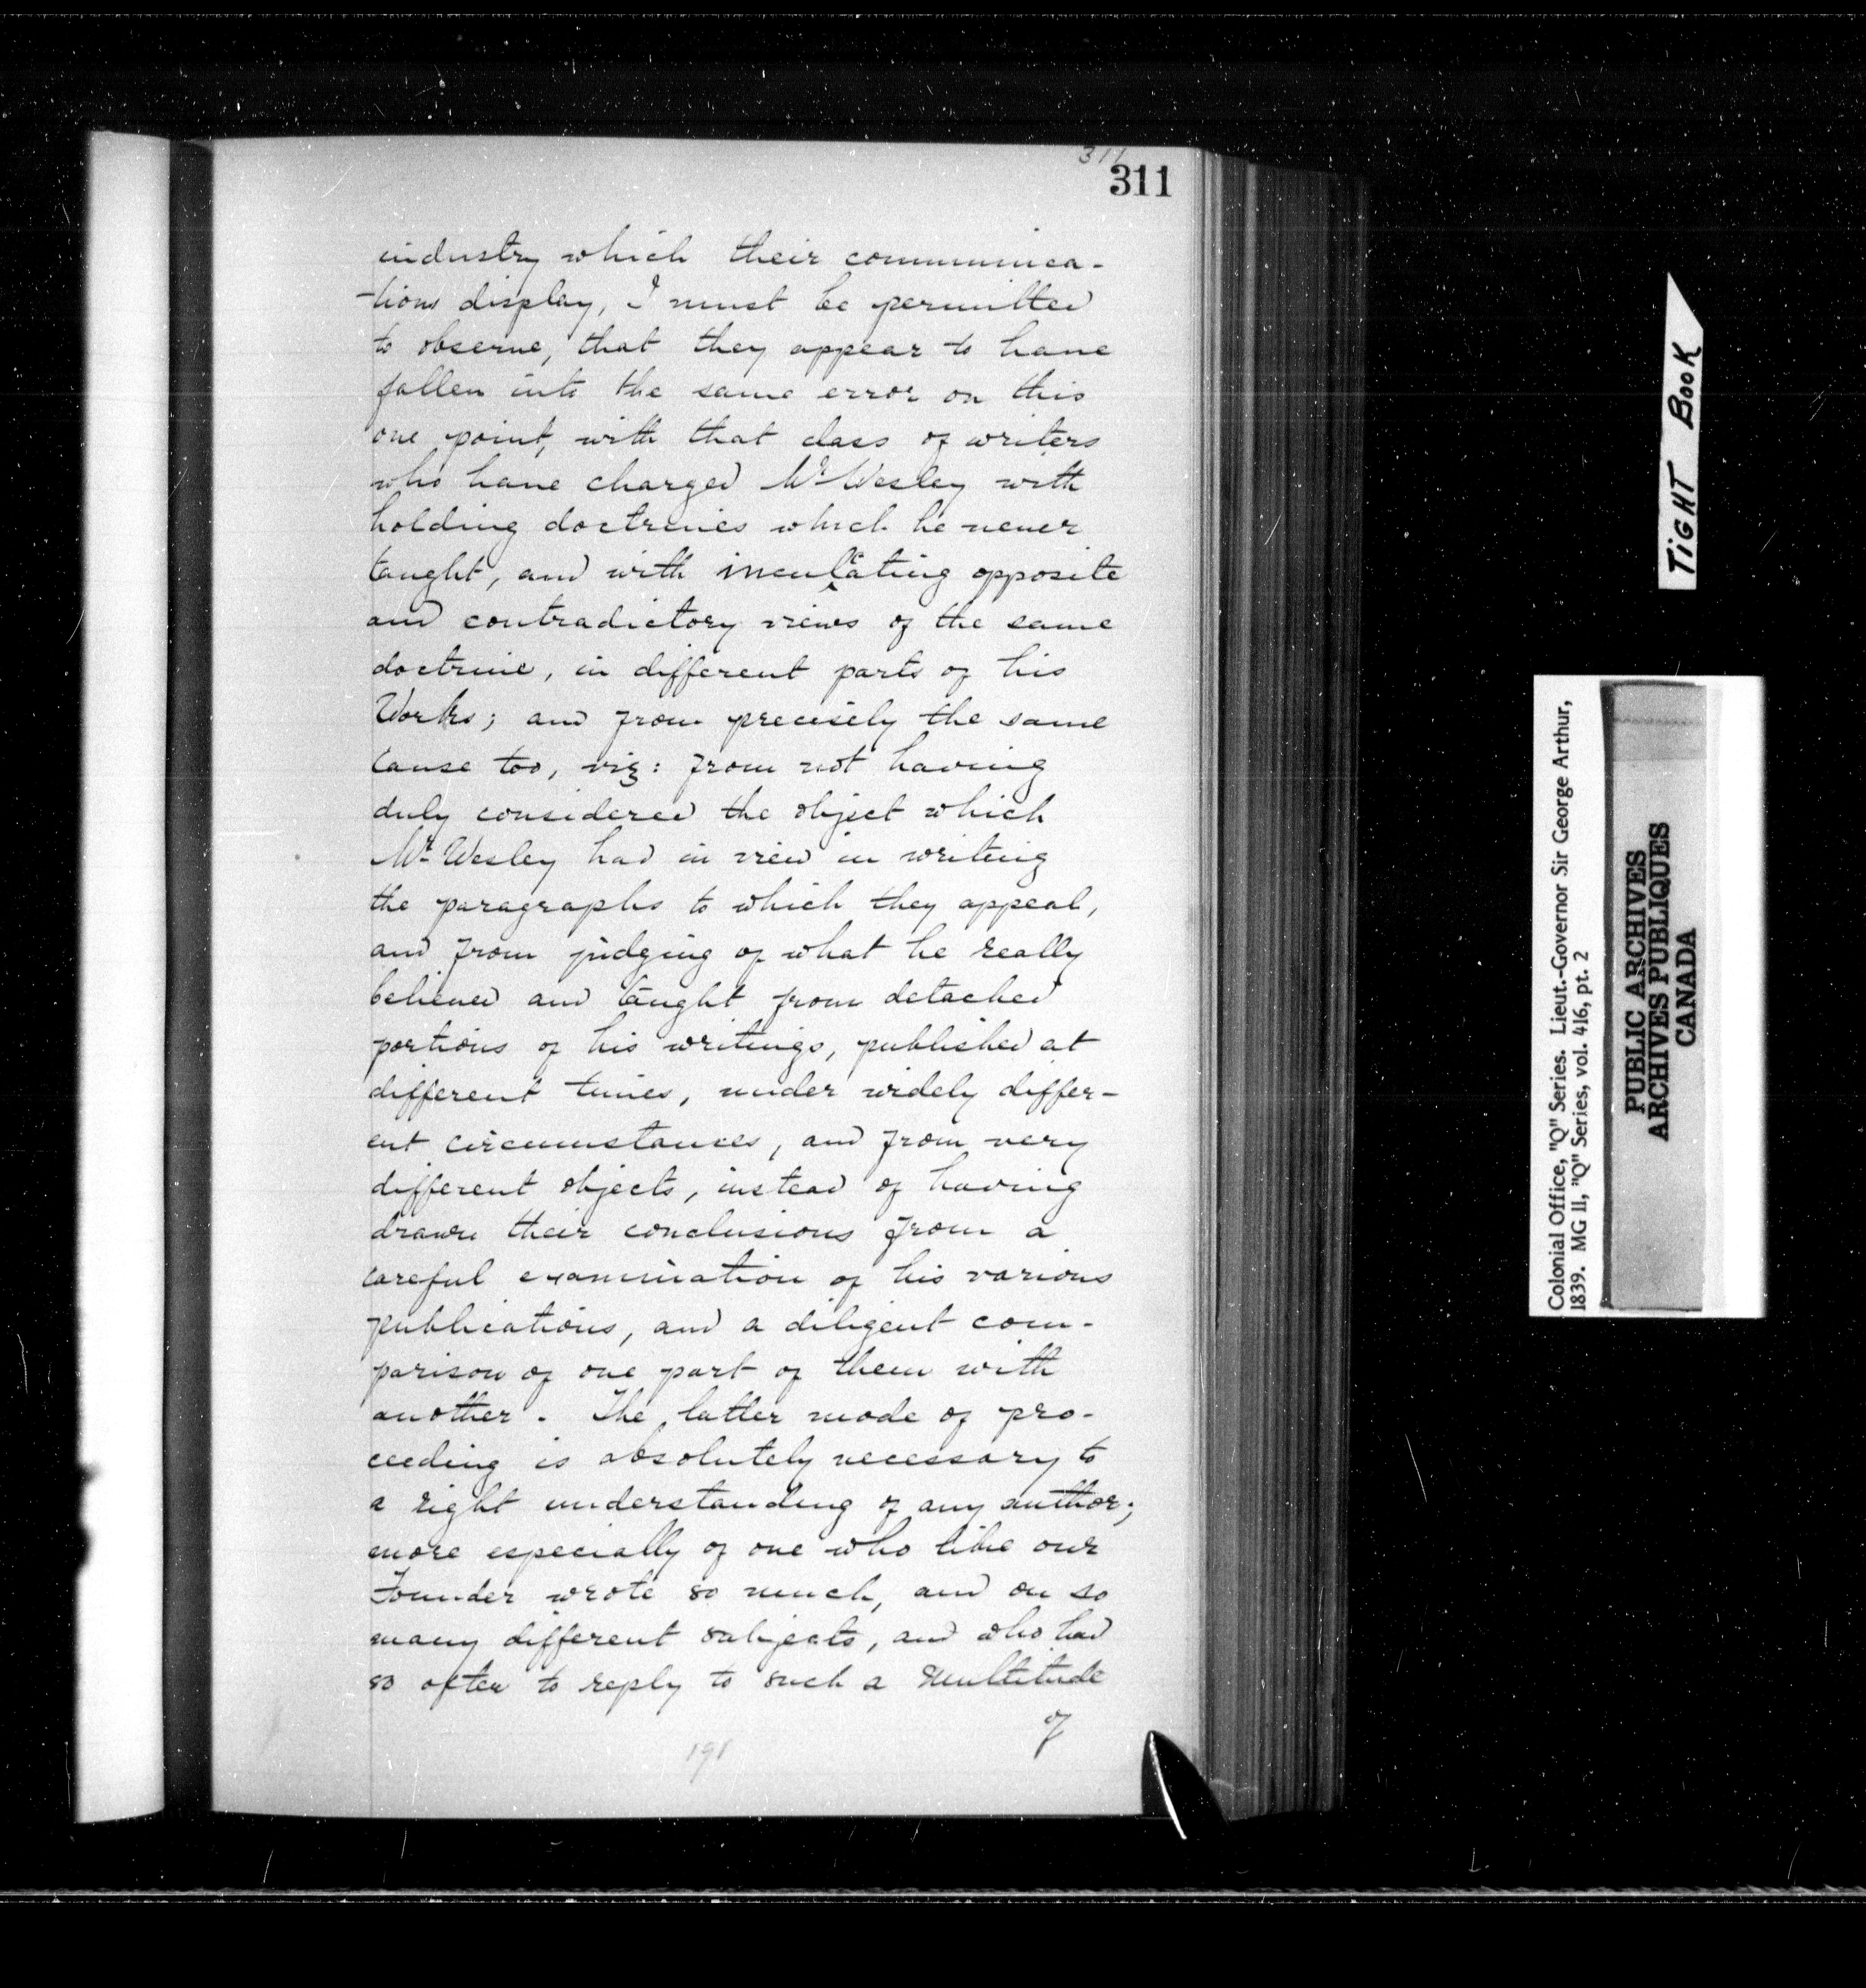 311
311
industry which their communica-
-tions display, I must be permitted
to observe, that they appear to have
fallen into the same error on this
one point, with that class of writers
who have charged Mr Wesley with
holding doctrines which he never
taught, and with inculcating opposite
and contradictory views of the same
doctrine, in different parts of his
Works; and from precisely the same
cause too, viz: from not having
duly considered the object which
Mr Wesley had in view in writing
the paragraphs to which they appeal,
and from judging of what he really
believed and taught from detached
portions of his writings, published at
different times, under widely differ-
ent circumstances, and from very
different objects, instead of having
drawn their conclusions from a
careful examination of his various
publications, and a diligent com-
parison of one part of them with
another. The latter mode of pro-
ceeding is absolutely necessary to
a right understanding of any author;
more especially of one who like our
Founder wrote so much, and on so
many different subjects, and who had
so often to reply to such a multitude
of
191
TIGHT BOOK
Colonial Office, "Q" Series. Lieut.-Governor Sir George Arthur,
1839. MG 11, "Q" Series, vol. 416, pt. 2
PUBLIC ARCHIVES
ARCHIVES PUBLIQUES
CANADA